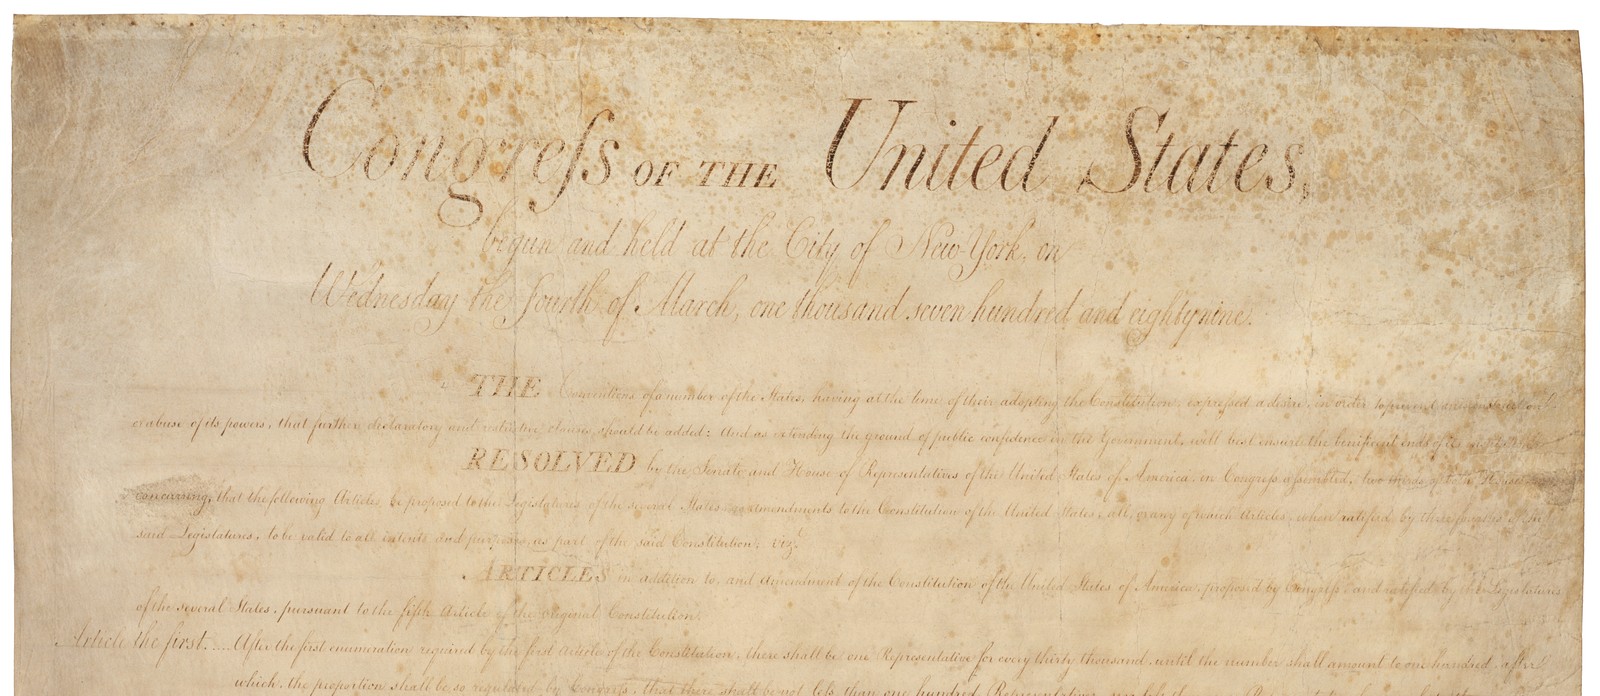 Congreſs OF THE United States,
begun and held at the City of New-York, on
Wednesday the fourth of March, one thousand seven hundred and eighty nine.
THE Conventions of a number of the States, having at the time of their adopting the Constitution, expressed a desire, in order to prevent misconstruction
or abuse of its powers, that further declaratory and restrictive clauses should be added: And as extending the ground of public confidence in the Government, will best ensure the beneficent ends of its institution
RESOLVED by the Senate and House of Representatives of the United States of America, in Congreſs aſsembled, two thirds of both Houses
concurring, that the following Articles be proposed to the Legislatures of the several States, as amendments to the Constitution of the United States, all, or any of which Articles, when ratified by three fourths of the
said Legislatures, to be valid to all intents and purposes, as part of the said Constitution; vizt.
ARTICLES in addition to, and amendment of the Constitution of the United States of America, proposed by Congreſs, and ratified by the Legislatures
of the several States, pursuant to the fifth Article of the original Constitution.
Article the first..... After the first enumeration required by the first Article of the Constitution, there shall be one Representative for every thirty thousand, until the number shall amount to one hundred, after
which, the proportion shall be so regulated by Congreſs, that there shall be not leſs than one hundred Representatives, nor leſs than